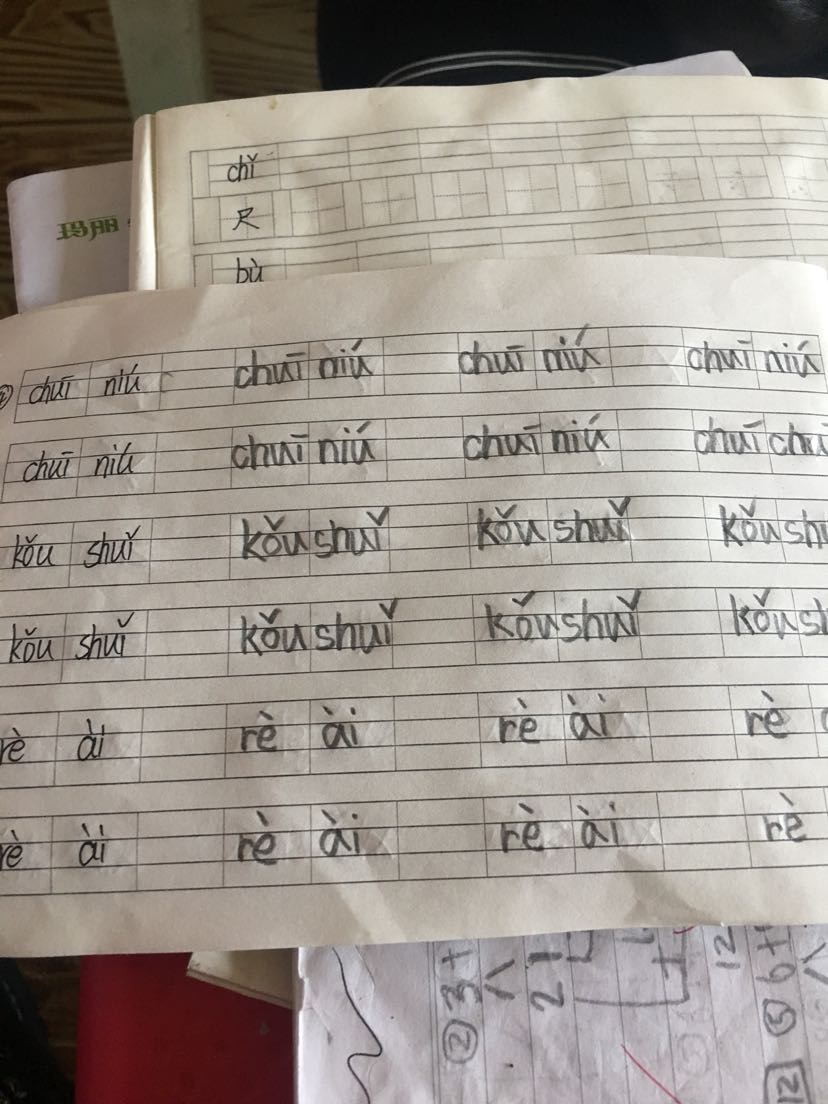 chǐ
尺
玛丽
bù
② chuī niú chuī niú chuī niú chuī niú
chuī niú chuī niú chuī niú chuī chu
kǒu shuǐ kǒu shuǐ kǒu shuǐ kǒu sh
kǒu shuǐ kǒu shuǐ kǒu shuǐ kǒu sh
rè ài rè ài rè ài rè
rè ài rè ài rè ài rè
② 3+
21
12
⑤ 6+
12